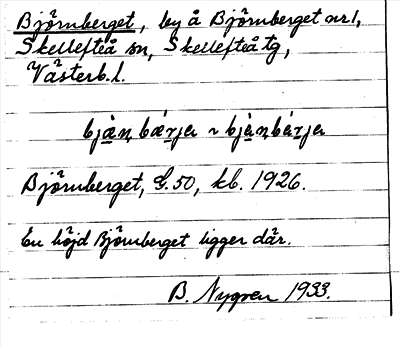 Björnberget, by å Björnberget nr 1,
Skellefteå sn, Skellefteå tg,
Västerb. l.
bjä̀n̥bær̀ja ~ bjàn̥bár̀ja
Björnberget, G. 50, kb. 1926.
En höjd Björnberget ligger där.
B. Nygren 1933.